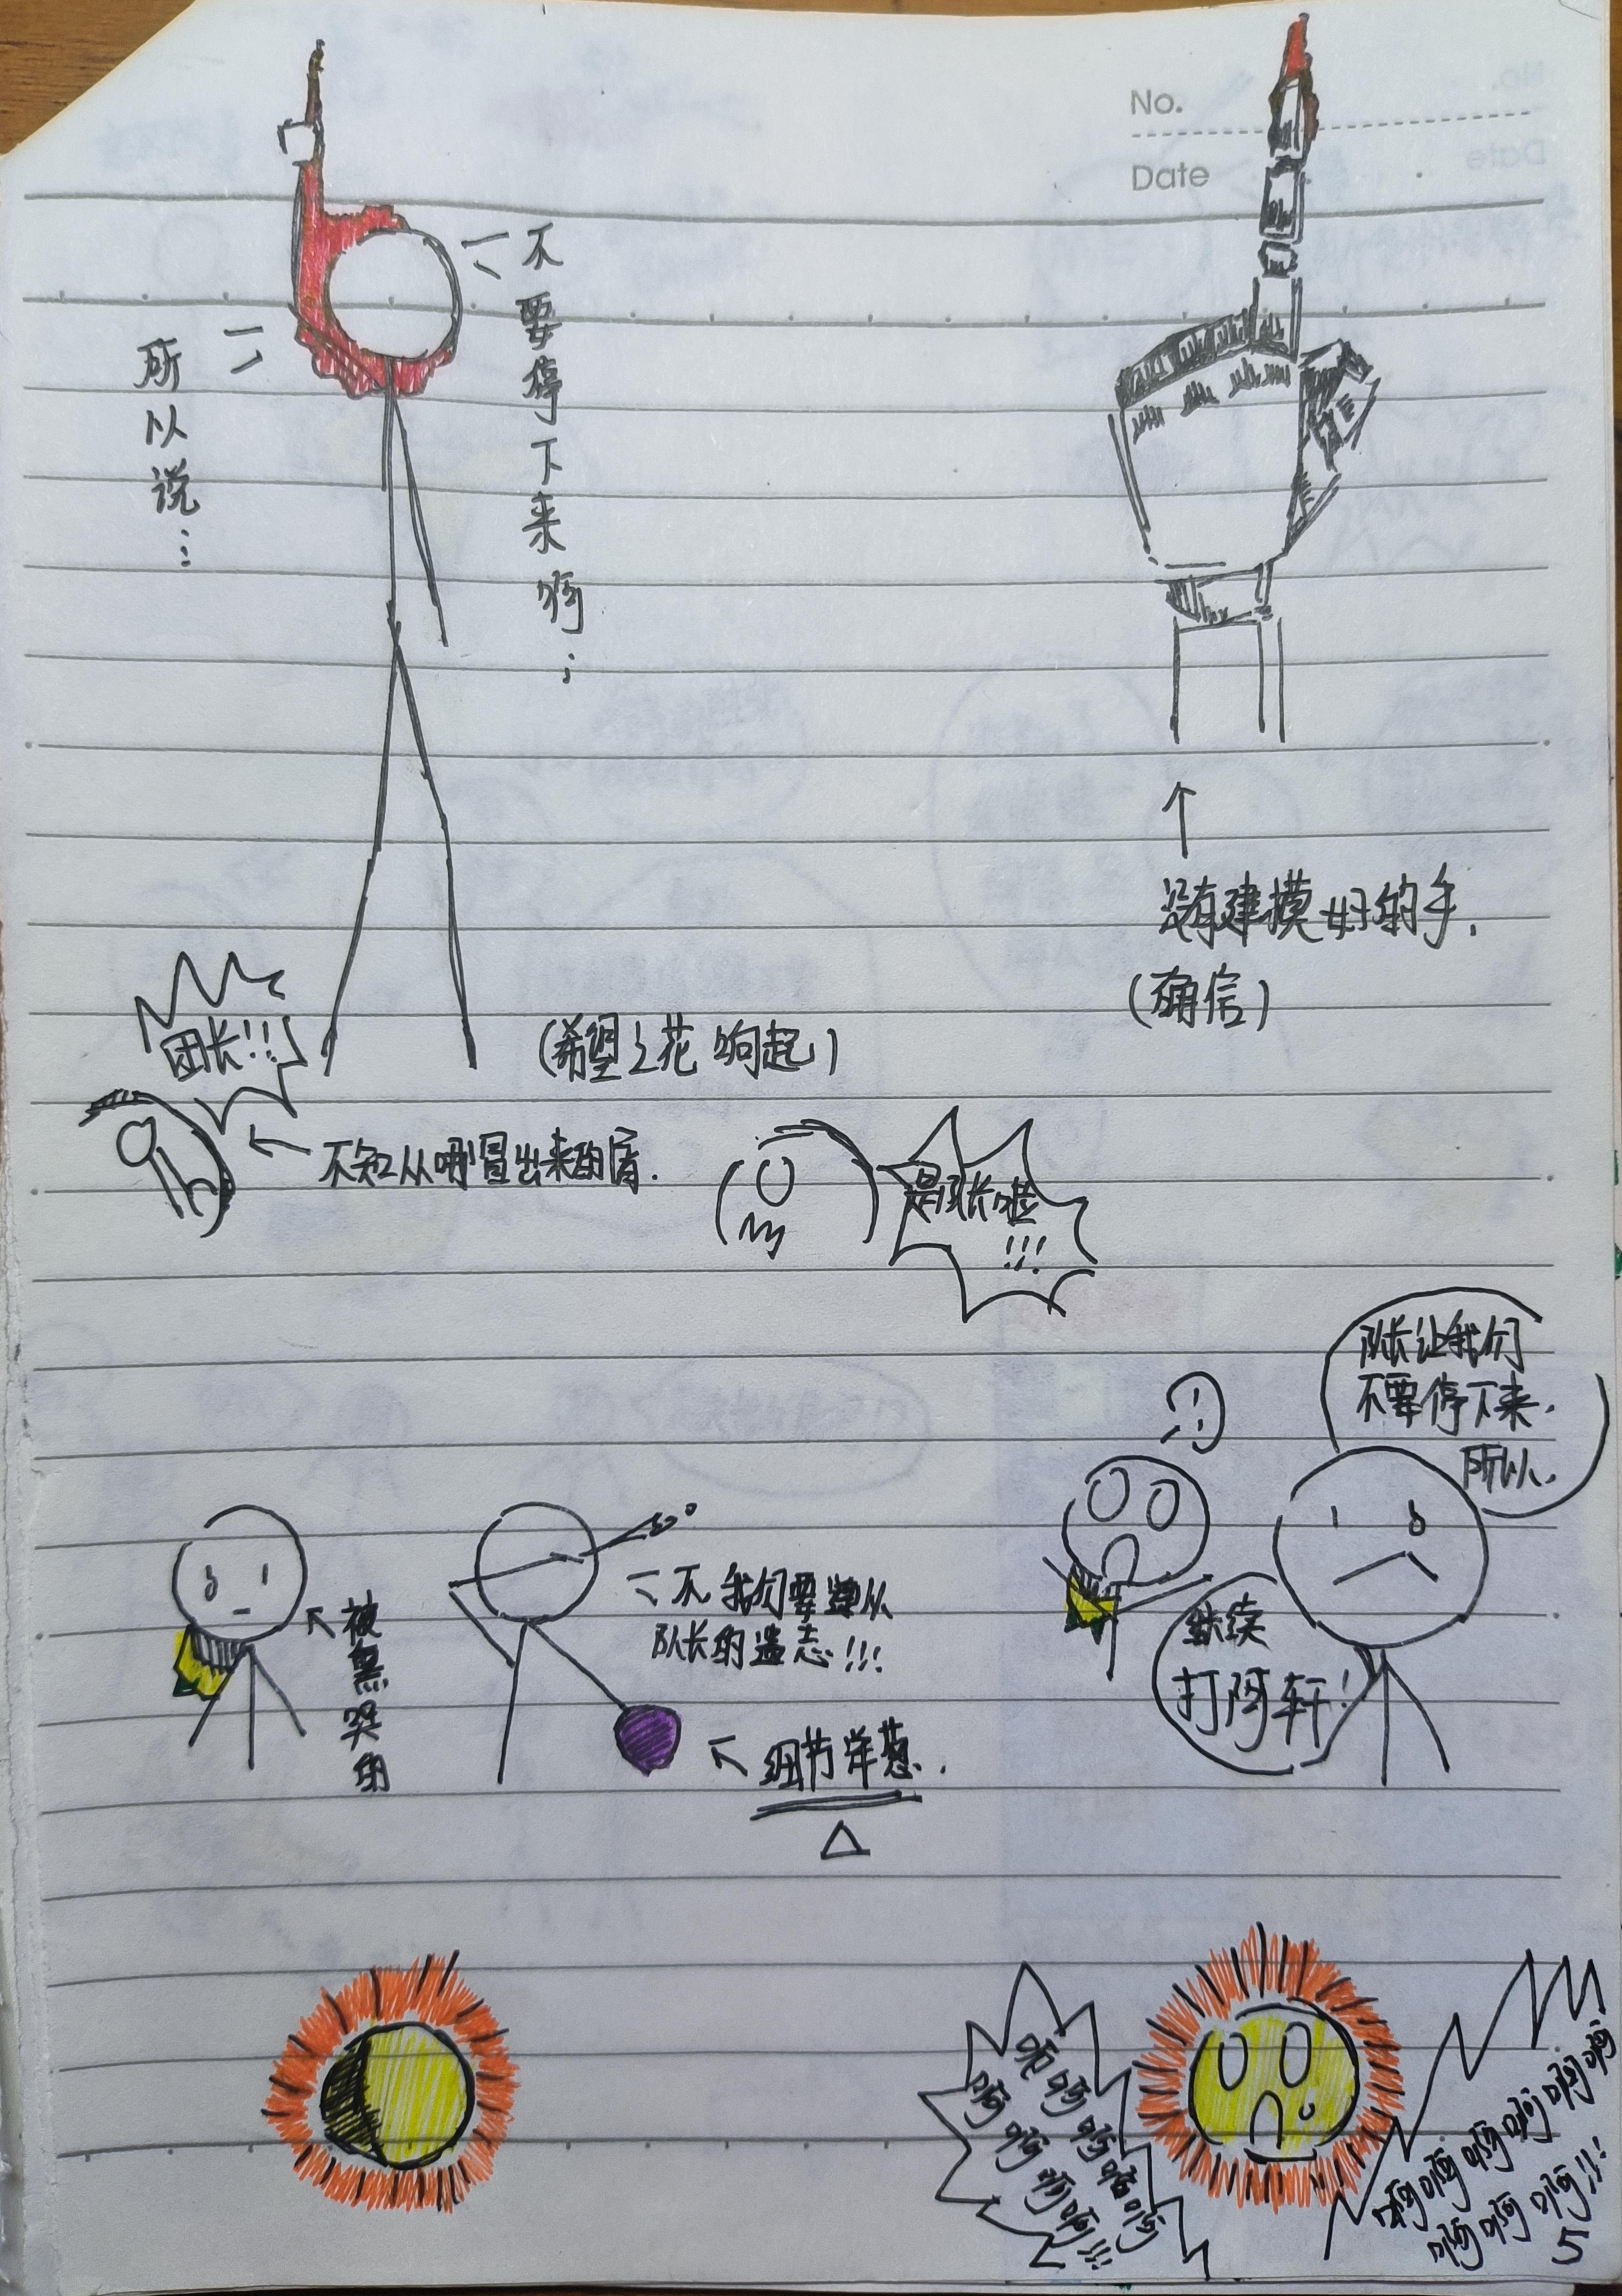 No.
Date
不要停下来啊；
所以说…
没有建模好的手.
(确信)
团长!!!
(希望之花响起)
不知从哪冒出来的盾.
是队长啦
!!!
队长让我们
不要停下来,
所以,
继续
打阿轩!
被熏哭的
不我们要遵从
队长的遗志!!!
细节洋葱.
呃啊啊啊啊啊啊啊啊!!!
啊啊啊啊啊啊
啊啊啊!!!
5